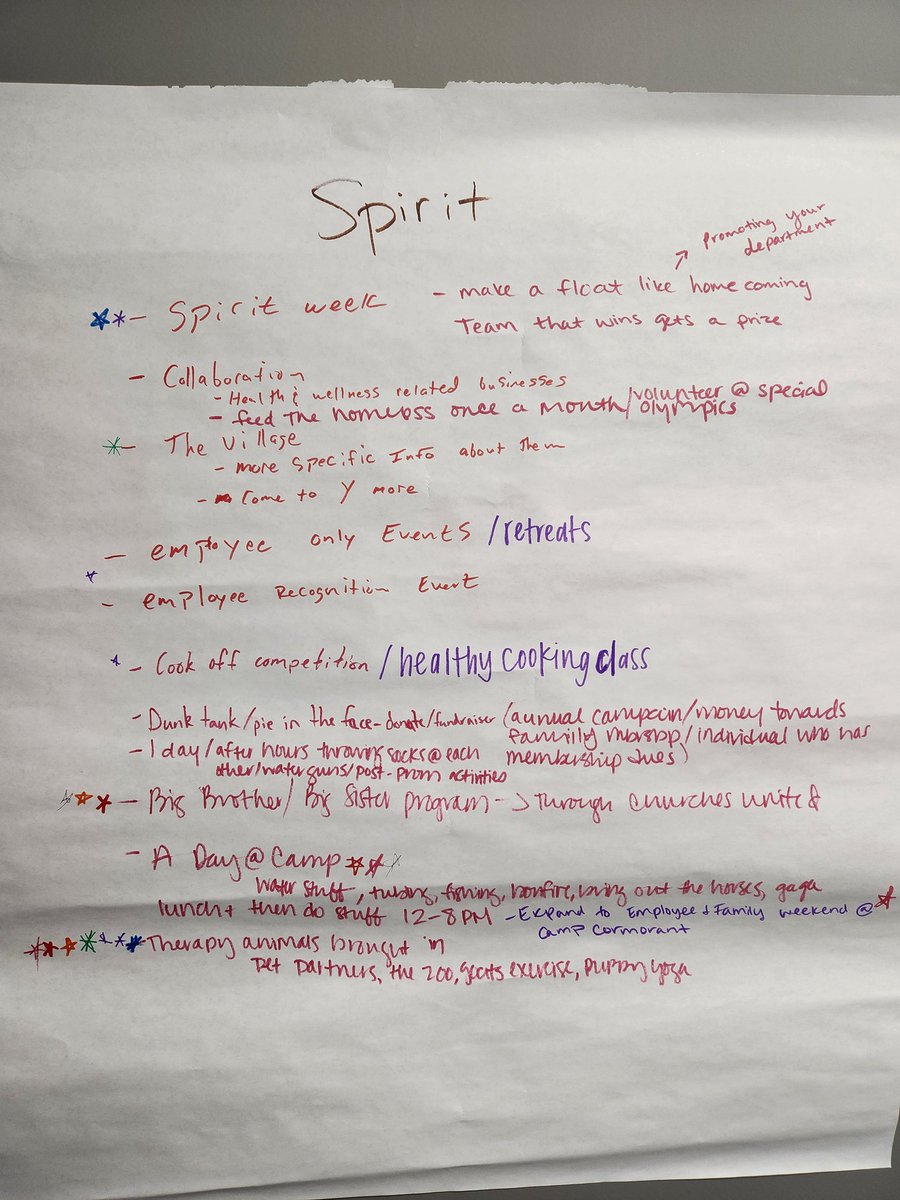 Spirit
Promoting your
department
- Spirit week - make a float like homecoming
Team that wins gets a prize
- Collaboration
- Health & wellness related businesses
- feed the homeless once a month/volunteer @ special
olympics
- The Village
- more specific Info about them
- Come to Y more
- employee only Events /retreats
- employee Recognition Event
- Cook off competition /healthy cooking class
- Dunk tank/pie in the face-donate/fundraiser (annual campain/money towards
familly mbrshp/individual who has
- 1 day/after hours throwing socks@each membership dues)
other/water guns/post-prom activities
- Big Brother/Big Sister program -> through churches united
- A Day@Camp
water stuff, tubing, fishing, bonfire, bring out the horses, gaga
lunch + then do stuff 12-8PM - Expand to Employee & Family weekend @
Camp Cormorant
Therapy animals brought in
pet partners, the zoo, goats exercise, puppy yoga